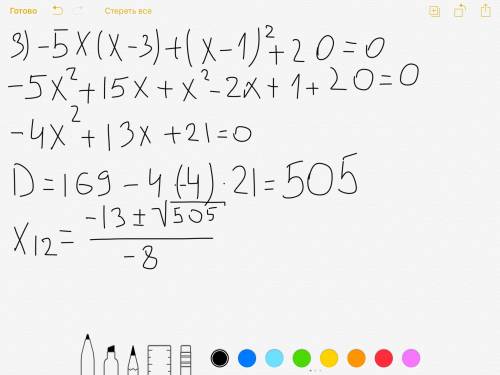 Готово Стереть все
3) -5x(x-3)+(x-1)²+20=0
-5x²+15x+x²-2x+1+20=0
-4x²+13x+21=0
D=169-4(-4)·21=505
x₁₂=(-13±√505)/-8